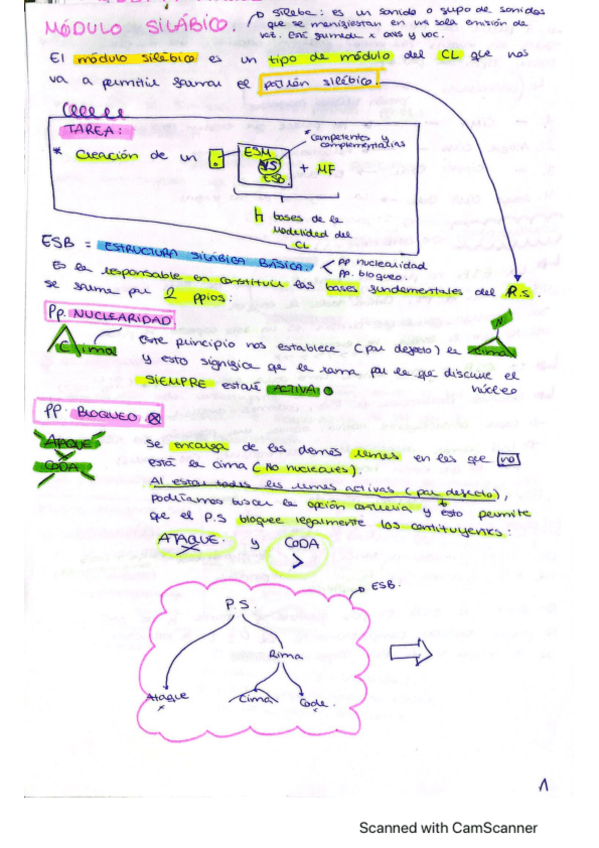 MÓDULO SILÁBICO.
Sílaba: es un sonido o grupo de sonidos
que se manifiestan en una sola emisión de
voz. Está formada x cons y voc.
El módulo silábico es un tipo de módulo del CL que nos
va a permitir formar el patrón silábico.
TAREA:
* Creación de un
ESM
VS
ESB.
+ MF
* competentes y
complementarias
bases de la
modalidad del
CL
ESB = ESTRUCTURA SILÁBICA BÁSICA.
PP nuclearidad
PP. bloqueo.
Es la responsable en constituir las bases fundamentales del P.S.
se forma por 2 ppios:
Pp. NUCLEARIDAD
Cima
este principio nos establece (por defecto) la cima
N
y esto significa que la rama por la que discurre el
núcleo
SIEMPRE estará ACTIVA
PP. BLOQUEO
ATAQUE
CODA
se encarga de las demás ramas en las que no
está la cima (no nucleares).
Al estar todas las ramas activas (por defecto),
podríamos buscar la opción contraria y esto permite
que el P.S bloquee legalmente los constituyentes:
ATAQUE. y CODA
ESB.
P.S.
Rima
Ataque
x
Cima
Coda.
x
1
Scanned with CamScanner